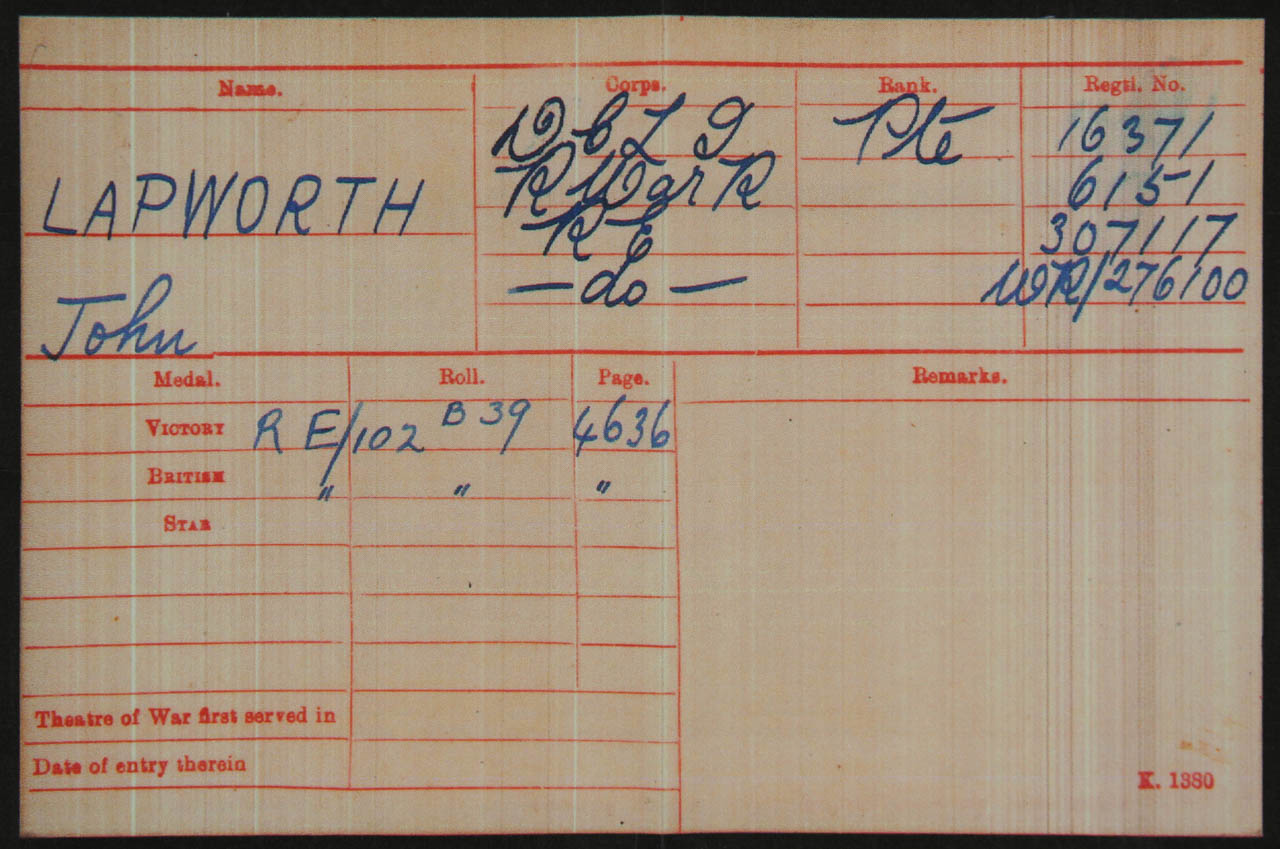 Name. Corps. Rank. Regtl. No.
D C L I Pte 16371
R War R 6151
LAPWORTH R E 307117
— do — WR/276100
John
Medal. Roll. Page. Remarks.
VICTORY R E/102 B 39 4636
BRITISH " " "
STAR
Theatre of War first served in
Date of entry therein
K. 1380